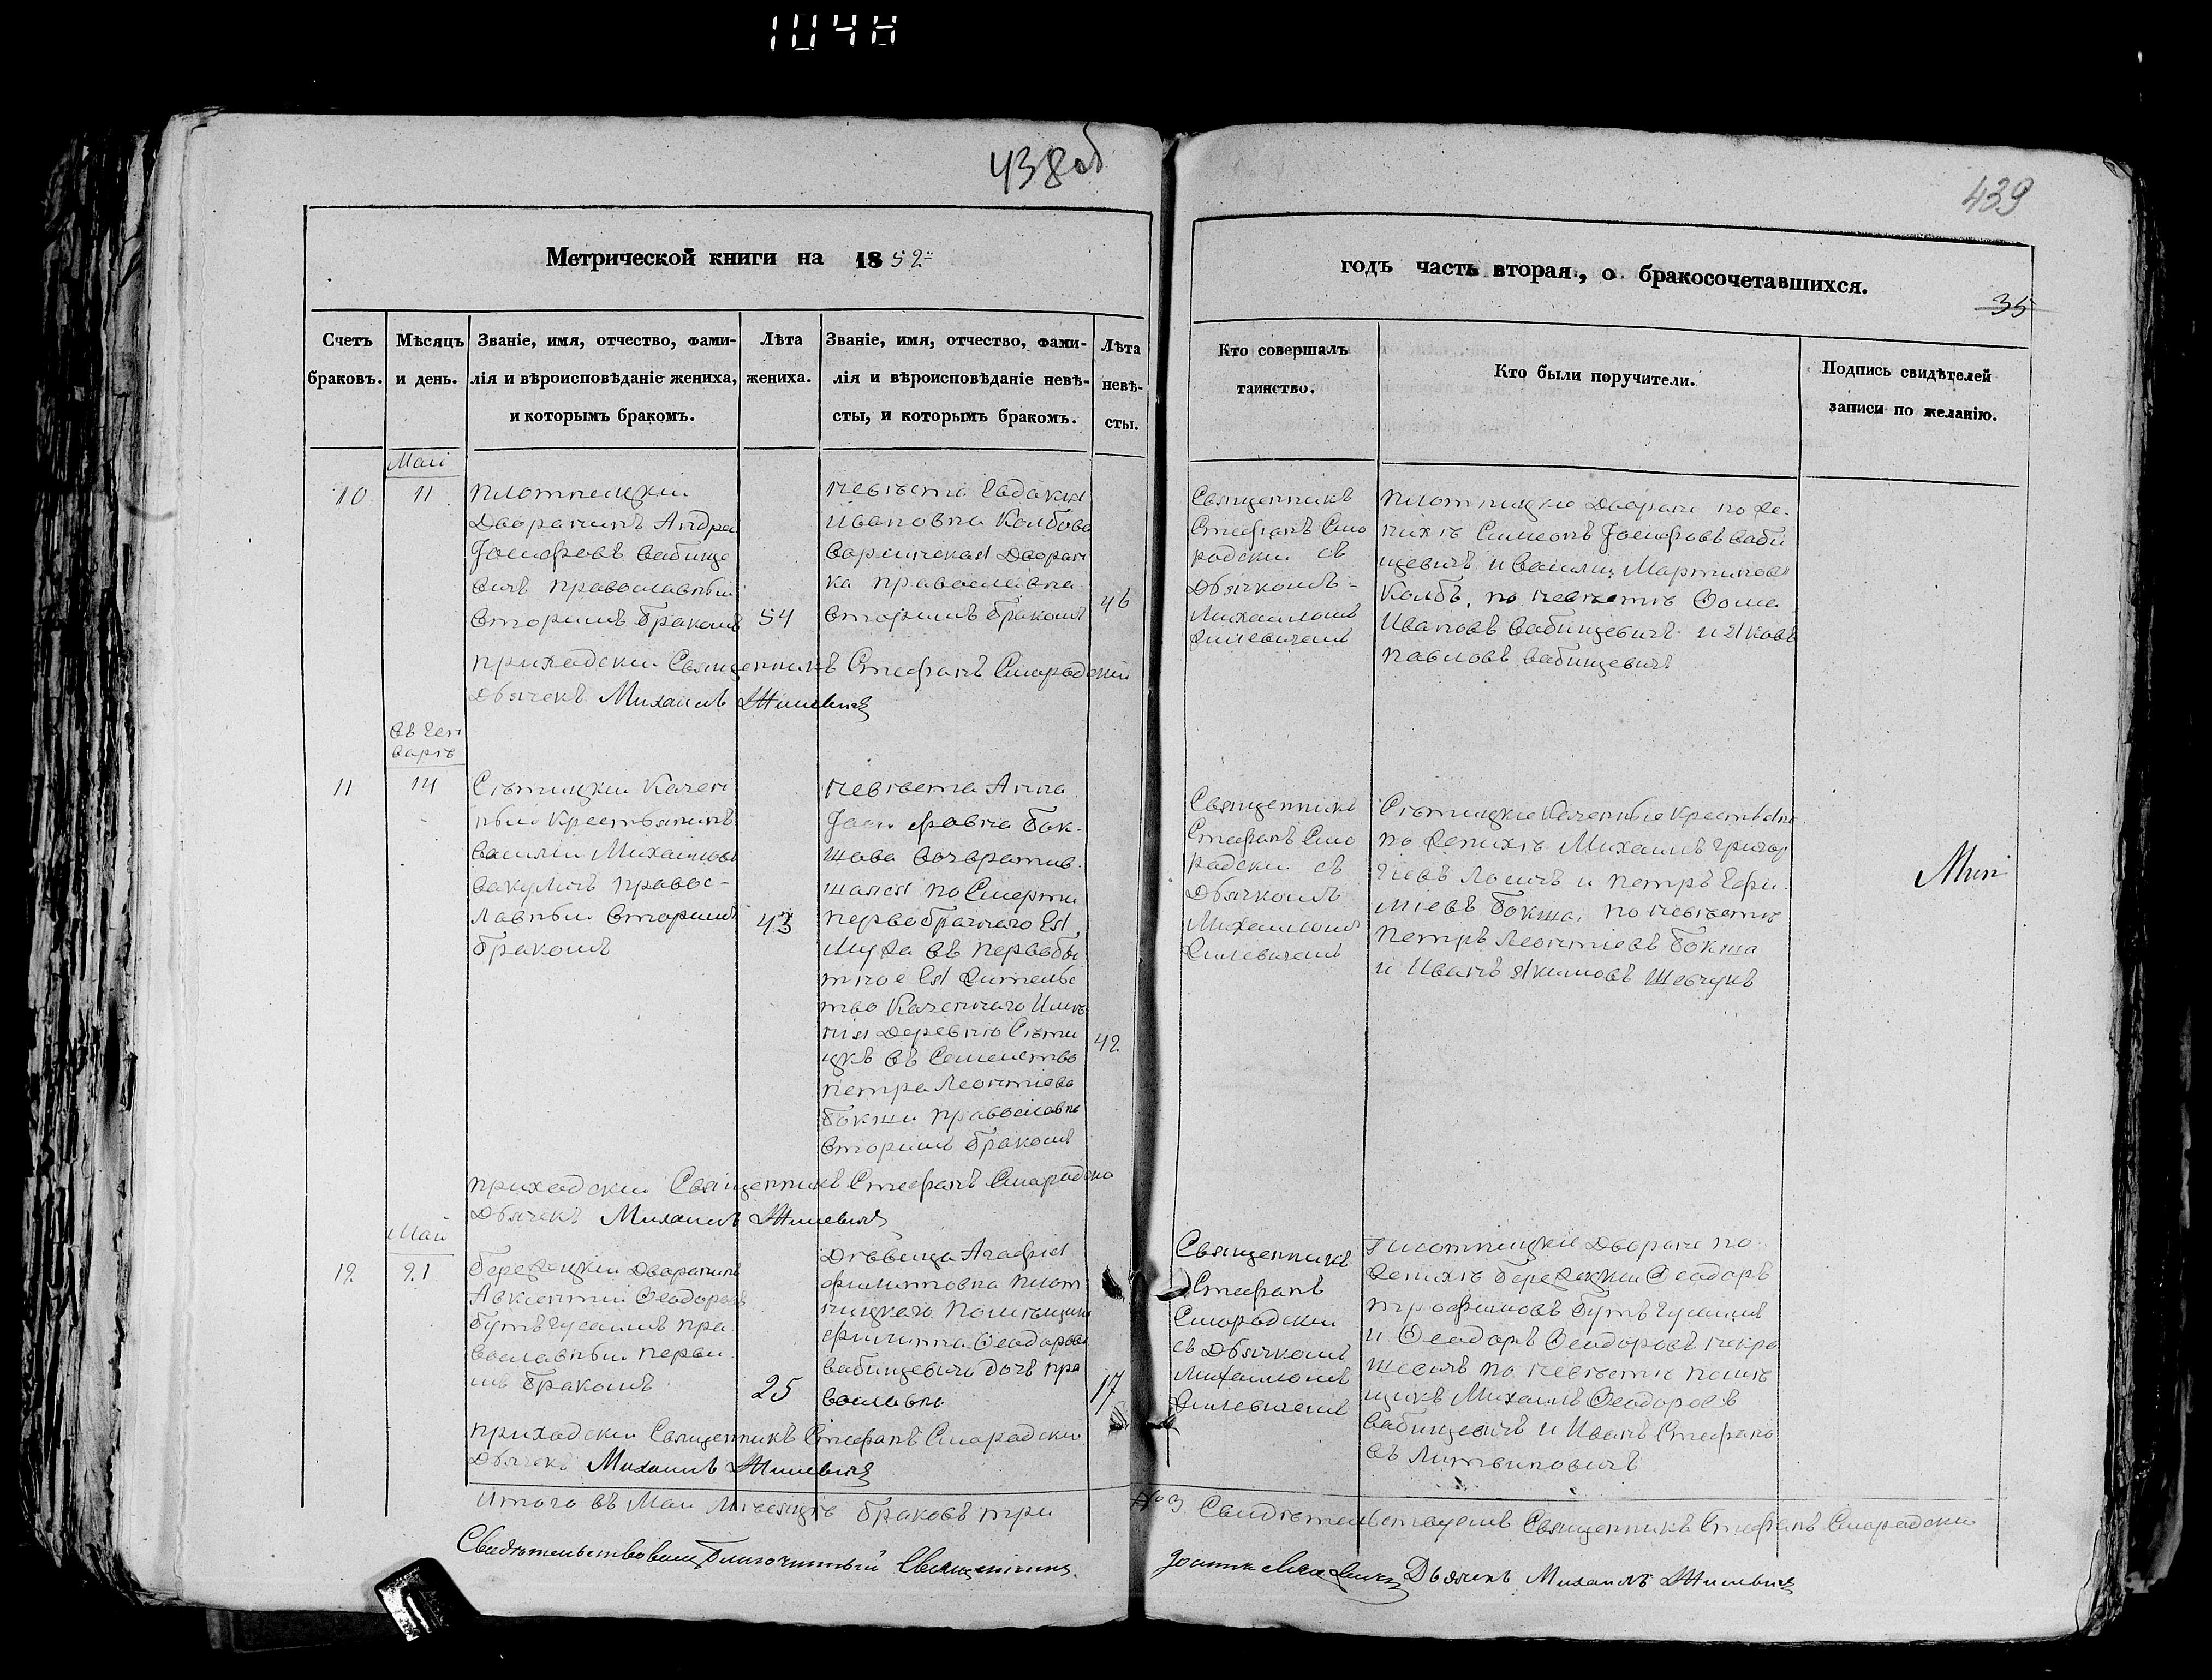 438об
439
Метрической книги на 1852
годъ часть вторая, о бракосочетавшихся.
35
Счетъ браковъ.
Мѣсяцъ и день.
Званіе, имя, отчество, фами-
лія и вѣроисповѣданіе жениха,
и которымъ бракомъ.
Лѣта
жениха.
Званіе, имя, отчество, фами-
лія и вѣроисповѣданіе невѣ-
сты, и которымъ бракомъ.
Лѣта
невѣ-
сты.
Кто совершалъ
таинство.
Кто были поручители.
Подпись свидѣтелей
записи по желанію.
Май
10
11
Плотницкий
Дворанинъ Андреи
Іосифовъ Вабище
вичъ православный
вторимъ бракомъ
54
невѣста Евдокия
Ивановна Колбова
Дворан
ка православна
вторимъ бракомъ
46
Священникъ
Стефанъ Смо
родски съ
Дьячкомъ
Михаиломъ
Жилевичемъ
Плотницкие Дворане по же-
нихѣ Симеонъ Іосифовъ Ваби
щевичъ и Василиц Мартинов
Колбъ, по невѣстѣ Фома
Ивановъ Вабищевичъ и Яковъ
Павловъ Вабищевичъ
приходски Священникъ Стефанъ Смородский
Дьячекъ Михаилъ Жилевичъ
въ Ген
варѣ
11
14
Сѣтицкий Казен
ный Крестьянинъ
Василий Михаиловъ
Вакуличъ правос-
лавный вторимъ
бракомъ
43
невѣста Анна
Іосифовна Бок-
шова возвратив-
шаяся по смерти
первобрачнаго Ея
мужа въ первобы
тное Ея жительс
тво Казеннаго Имѣ
ния Деревню Сѣти
цкъ въ Семейство
Петра Леонтиева
Бокши православна
вторимъ бракомъ
42
Священникъ
Стефанъ Смо
родски съ
Дьячкомъ
Михаиломъ
Жилевичемъ
Сѣтицкие Казенные Крестьяне
по женихѣ Михаилъ Григор
иевъ и Петръ Ефи-
миевъ Бокша, по невѣстѣ
Петръ Леонтиевъ Бокша
и Иванъ Якимовъ Шевчукъ
приходски Священникъ Стефанъ Смородски
Дьячекъ Михаилъ Жилевичъ
Май
12
21
Бережецкий Дворанинъ
Авксентий Феодоровъ
Бутьгусаимъ пра
вославный перви
мъ бракомъ
25
Дѣвица Агафия
Филиповна Плот
ницкаго помѣщика
Филипа Феодорова
Вабищевича дочь пра
вославна
17
Священникъ
Стефанъ
Смородски
съ Дьячкомъ
Михаиломъ
Жилевичемъ
Плотницкие Дворане по
женихѣ Бережецкий Феодоръ
Трофимовъ Бутьгусаимъ
и Феодоръ Феодоровъ Некра
шевичъ по невѣстѣ помѣ
щикъ Михаилъ Феодоровъ
Вабищевичъ и Иванъ Стефано
въ Литвиновичъ
приходски Священникъ Стефанъ Смородски
Дьячекъ Михаилъ Жилевичъ
Итого въ Маи Мѣсяцѣ браковъ три
№ 3 Свидѣтельствуемъ Священникъ Стефанъ Смородски
Свидѣтельствовалъ Благочинный Священникъ
Дьячекъ Михаилъ Жилевичъ